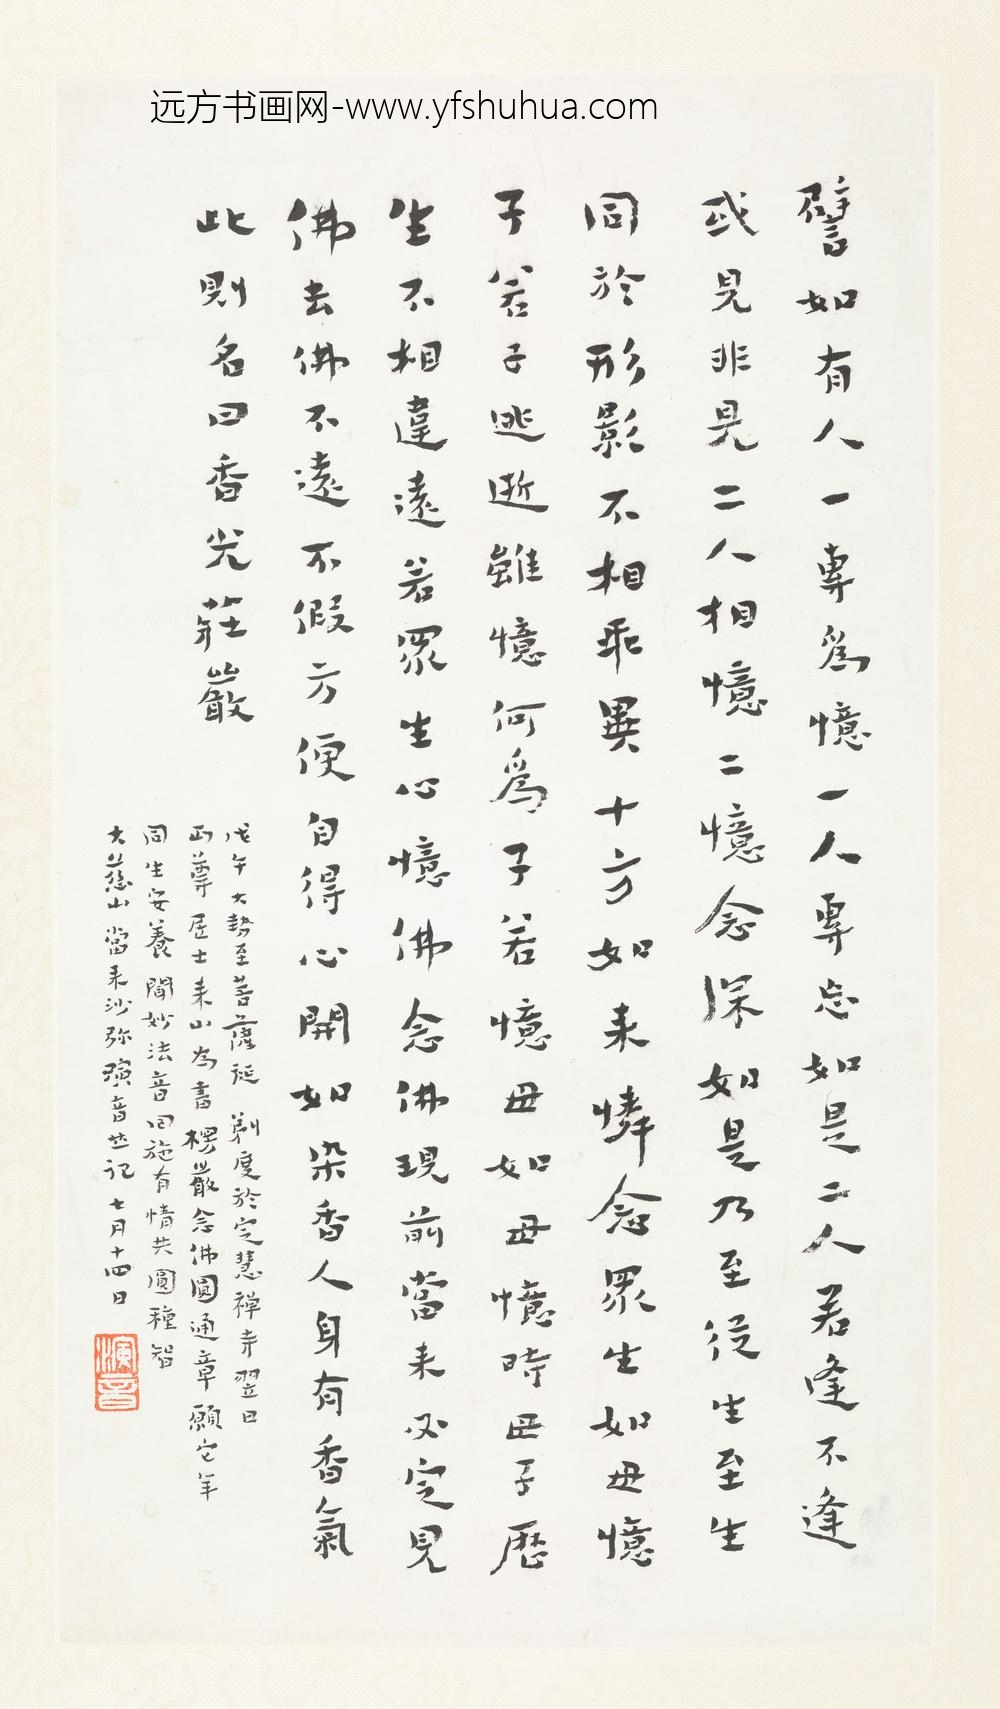 远方书画网-www.yfshuhua.com
譬如有人一專爲憶一人專忘如是二人若逢不逢
或見非見二人相憶二憶念深如是乃至從生至生
同於形影不相乖異十方如來憐念眾生如母憶
子若子逃逝雖憶何爲子若憶母如母憶時母子歷
生不相違遠若眾生心憶佛念佛現前當來必定見
佛去佛不遠不假方便自得心開如染香人身有香氣
此則名曰香光莊嚴
戊午大勢至菩薩誕 剃度於定慧禪寺翌日
丏尊居士來山為書楞嚴念佛圓通章願它年
同生安養聞妙法音回施有情共圓種智
大慈山當来沙弥演音並記七月十四日
演音